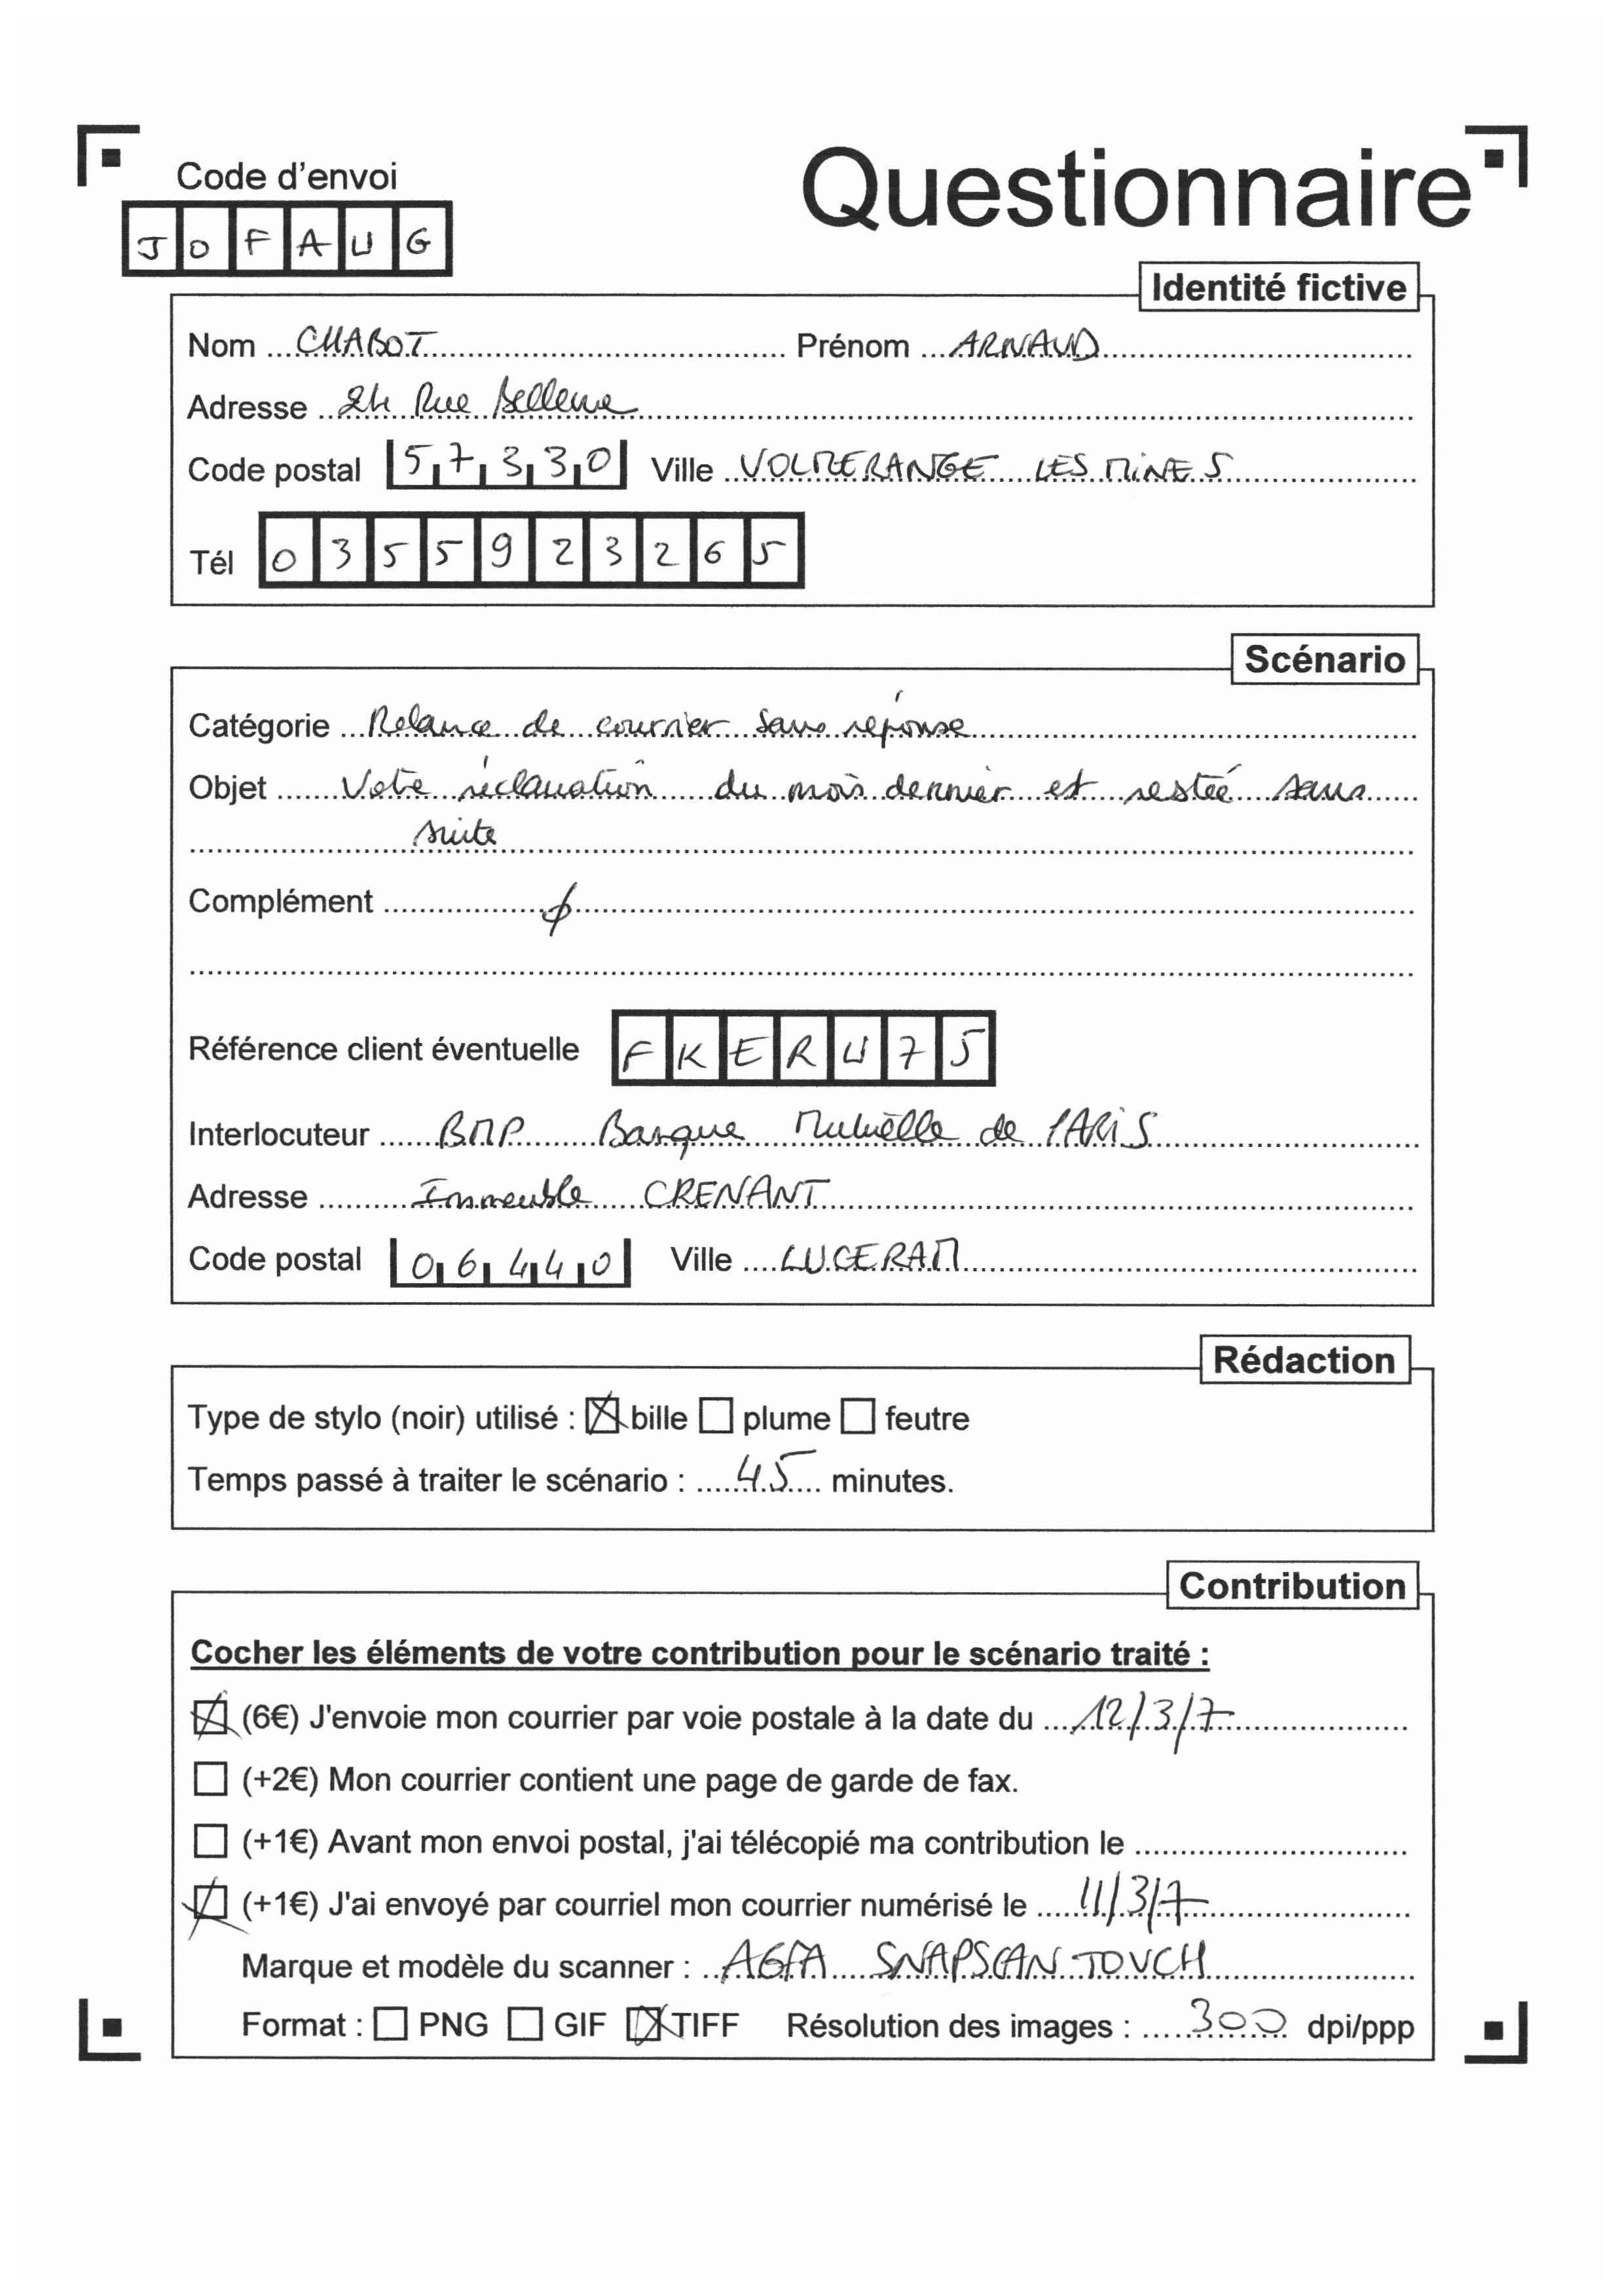 Code d'envoi
Questionnaire
JOFAUG
Identité fictive
Nom CHABOT Prénom ARNAUD
Adresse 24 Rue Bellevue
Code postal 57330 Ville VOLMERANGE LES MINES
Tél 0355923265
Scénario
Catégorie Relance de courrier sans réponse
Objet Votre réclamation du mois dernier est restée sans
suite
Complément ϕ
Référence client éventuelle FKERU75
Interlocuteur BMP Banque Mutuelle de PARIS
Adresse Immeuble CRENANT
Code postal 06440 Ville LUCERAM
Rédaction
Type de stylo (noir) utilisé : bille plume feutre
Temps passé à traiter le scénario : 45 minutes.
Contribution
Cocher les éléments de votre contribution pour le scénario traité :
(6€) J'envoie mon courrier par voie postale à la date du 12/3/7
(+2€) Mon courrier contient une page de garde de fax.
(+1€) Avant mon envoi postal, j'ai télécopié ma contribution le
(+1€) J'ai envoyé par courriel mon courrier numérisé le 11/3/7
Marque et modèle du scanner : AGFA SNAPSCAN TOUCH
Format : PNG GIF TIFF Résolution des images : 300 dpi/ppp